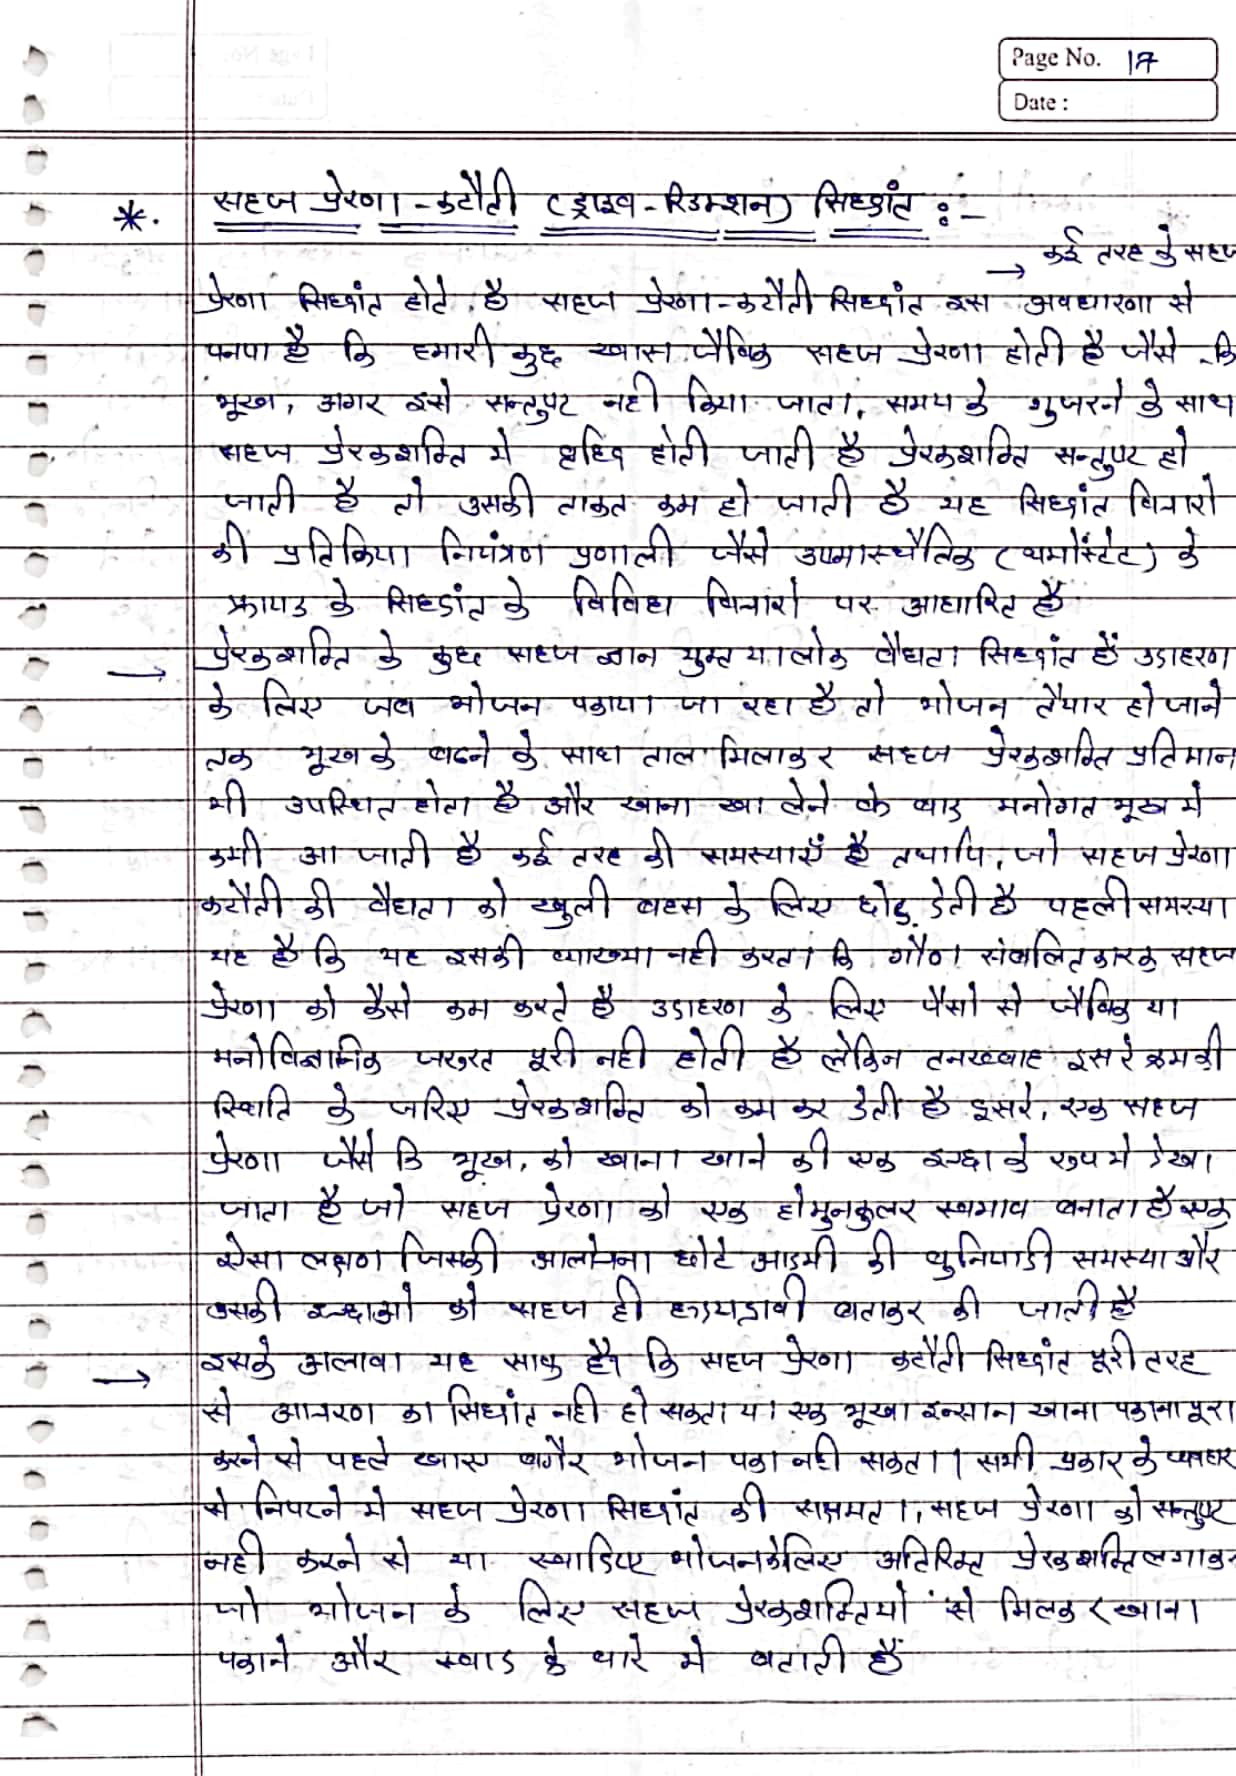 Page No. 17
Date :
*. सहज प्रेरणा - कटौती (ड्राइव - रिडक्शन) सिद्धांत :-
→ कई तरह के सहज
प्रेरणा सिद्धांत होते है सहज प्रेरणा-कटौती सिद्धांत इस अवधारणा से
पनपा है कि हमारी कुछ खास जैविक सहज प्रेरणा होती है जैसे कि
भूख, अगर इसे सन्तुष्ट नही किया जाता, समय के गुजरने के साथ
सहज प्रेरकशक्ति मे वृद्धि होती जाती है प्रेरकशक्ति सन्तुष्ट हो
जाती है तो उसकी ताकत कम हो जाती है यह सिद्धांत विचारो
की प्रतिक्रिया नियंत्रण प्रणाली जैसे उष्मास्थैतिक (थर्मोस्टेट) के
फ्रायड के सिद्धांत के विविध विचारो पर आधारित है
→ प्रेरकशक्ति के कुछ सहज ज्ञान युक्त या लोक वैधता सिद्धांत हैं उदाहरण
के लिए जब भोजन पकाया जा रहा है तो भोजन तैयार हो जाने
तक भूख के बढने के साथ ताल मिलाकर सहज प्रेरकशक्ति प्रतिमान
भी उपस्थित होता है और खाना खा लेने के बाद मनोगत भूख मे
कमी आ जाती है कई तरह की समस्याएँ है तथापि, जो सहज प्रेरणा
कटौती की वैधता को खुली बहस के लिए छोड़ देती है पहली समस्या
यह है कि यह इसकी व्याख्या नही करता कि गौण संवलित कारक सहज
प्रेरणा को कैसे कम करते है उदाहरण के लिए पैसो से जैविक या
मनोविज्ञानिक जरुरत पूरी नही होती है लेकिन तनख्वाह दूसरे क्रम की
स्थिति के जरिए प्रेरकशक्ति को कम कर देती है दूसरे, एक सहज
प्रेरणा जैसे कि भूख, को खाना खाने की एक इच्छा के रुप मे देखा
जाता है जो सहज प्रेरणा को एक होमुनकुलर स्वभाव बनाता है एक
ऐसा लक्षण जिसकी आलोचना छोटे आदमी की बुनियादी समस्या और
उसकी इच्छाओ को सहज ही हृदयद्रावी बताकर की जाती है
→ इसके अलावा यह साफ है कि सहज प्रेरणा कटौती सिद्धांत पूरी तरह
से आचरण का सिद्धांत नही हो सकता या एक भूखा इन्सान खाना पकाना पूरा
करने से पहले खाए बगैर भोजन पका नही सकता। सभी प्रकार के व्यवहार
से निपटने मे सहज प्रेरणा सिद्धांत की सक्षमता, सहज प्रेरणा को सन्तुष्ट
नही करने से या स्वादिष्ट भोजन के लिए अतिरिक्त प्रेरकशक्ति लगाकर
जो भोजन के लिए सहज प्रेरकशक्तियों से मिलकर खाना
पकाने और स्वाद के बारे मे बताती है